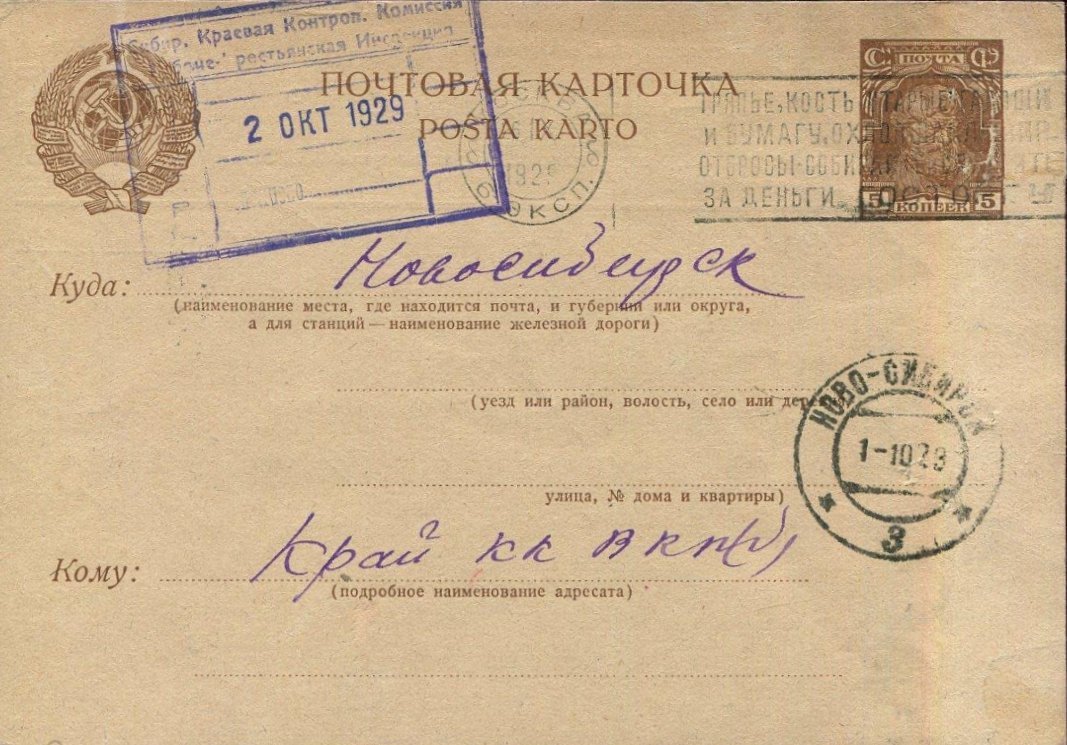 Сибир. Краевая Контрол. Комиссия
рестьянская Инспекция
2 ОКТ 1929
ПОЧТОВАЯ КАРТОЧКА
POŜTA KARTO
МОСКВА
1929
ЭКСП.
ТРЯПЬЕ, КОСТЬ
И БУМАГУ,
ЗА ДЕНЬГИ
С ПОЧТА Ф
5 КОПЕЕК 5
Куда: Новосибирск
(наименование места, где находится почта, и губернии или округа,
а для станций — наименование железной дороги)
(уезд или район, волость, село или деревня)
НОВО-СИБИРСК
1-10 29
3
улица, № дома и квартиры)
Кому: Край КК ВКП(б)
(подробное наименование адресата)